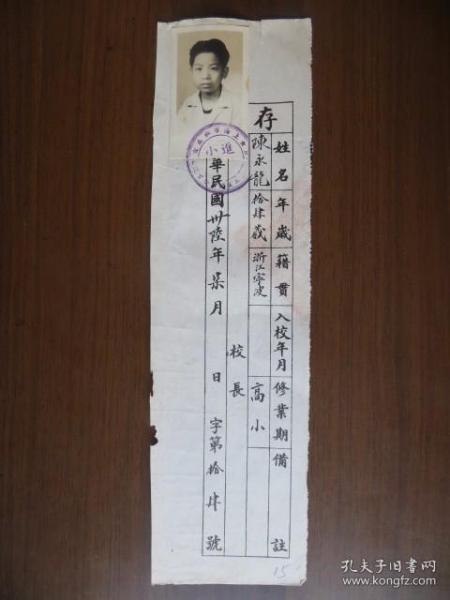 存
姓名 年歲 籍貫 入校年月 修業期 備註
陳永龍 拾肆歲 浙江寧波 高小
校長
華民國卅陸年柒月 日 字第拾肆號
進小
15
孔夫子旧书网
www.kongfz.com